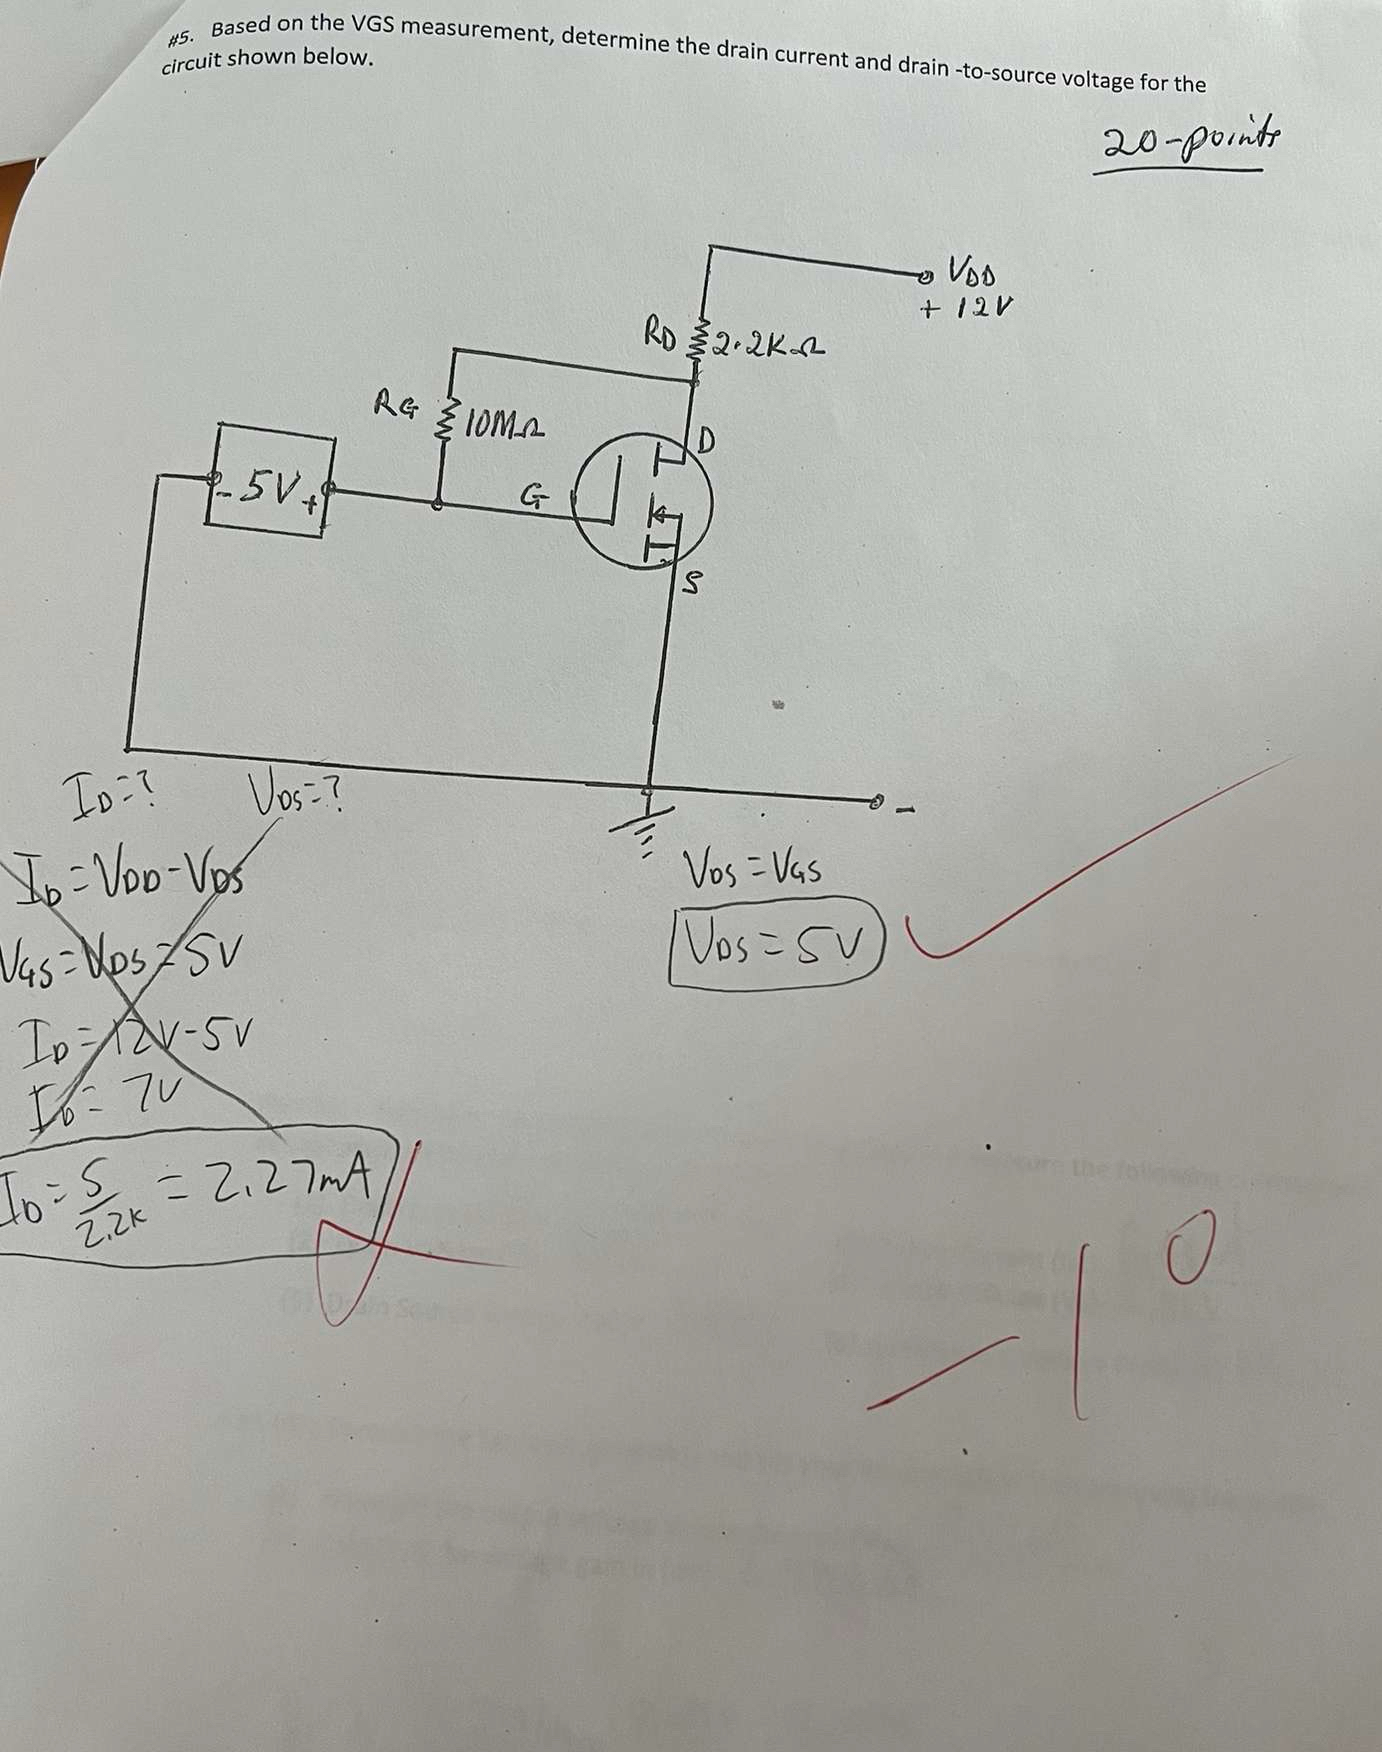 #5. Based on the VGS measurement, determine the drain current and drain -to-source voltage for the
circuit shown below.
20-points
VDD
+ 12V
RD 2.2KΩ
RG 10MΩ
D
- 5V +
G
S
ID=? VDS=?
-
ID=VDD-VDS
VDS=VGS
VGS=VDS=5V
VDS=5V
ID=12V-5V
ID=7V
ID=5/2.2K=2.27mA
-10